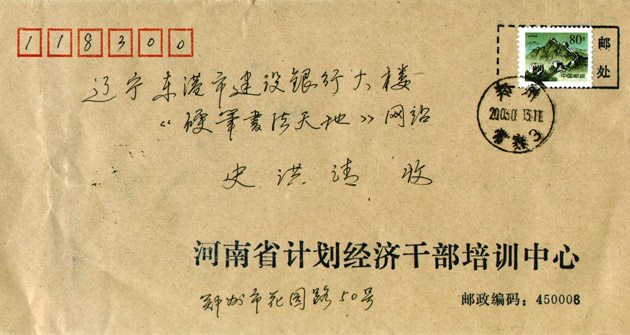 118300
80分
中国邮政
邮
处
辽宁东港市建设银行大楼
《硬笔书法天地》网站
史洪清 收
河南省计划经济干部培训中心
郑州市花园路50号
邮政编码：450008